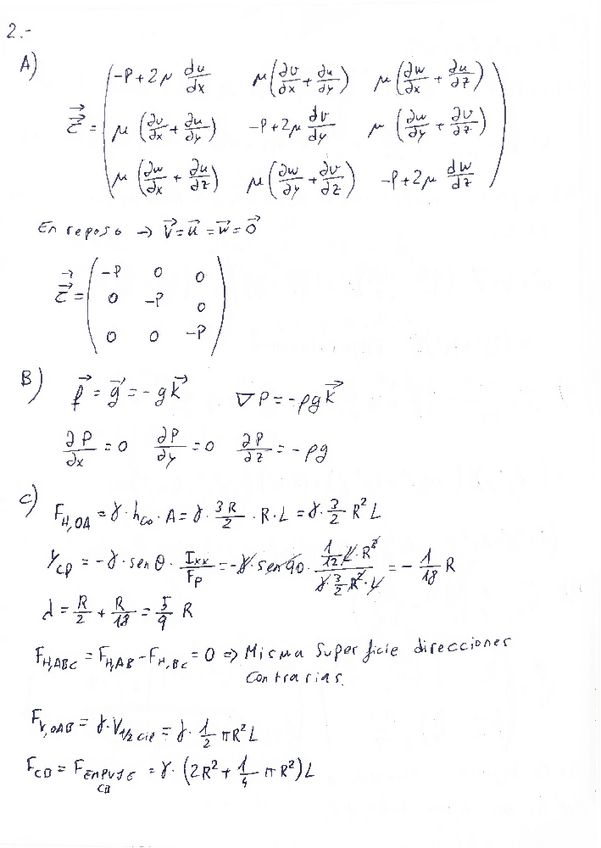 2.-
A)
τ⃗⃗ = ( -P+2μ du/dx   μ(∂v/∂x + ∂u/∂y)   μ(∂w/∂x + ∂u/∂z)
μ(∂v/∂x + ∂u/∂y)   -P+2μ dv/dy   μ(∂w/∂y + ∂v/∂z)
μ(∂w/∂x + ∂u/∂z)   μ(∂w/∂y + ∂v/∂z)   -P+2μ dw/dz )
En reposo → v⃗ = u⃗ = w⃗ = 0⃗
τ⃗⃗ = ( -P 0 0
0 -P 0
0 0 -P )
B) f⃗ = g⃗ = -gk⃗   ∇P = -ρgk⃗
∂P/∂x = 0   ∂P/∂y = 0   ∂P/∂z = -ρg
C) F_H,OA = γ · h_CG · A = γ · 3R/2 · R · L = γ · 3/2 R² L
Y_CP = -γ · sen θ · Ixx/Fp = -γ · sen 90 · (1/12 L · R³)/(γ 3/2 R² · L) = -1/18 R
λ = R/2 + R/18 = 5/9 R
F_H,ABC = F_H,AB - F_H,BC = 0 ⇒ Misma superficie direcciones
contrarias.
F_V,OAB = γ · V_1/2 cil = γ · 1/2 πR² L
F_CB = F_EMPUJE CB = γ · (2R² + 1/4 πR²) L